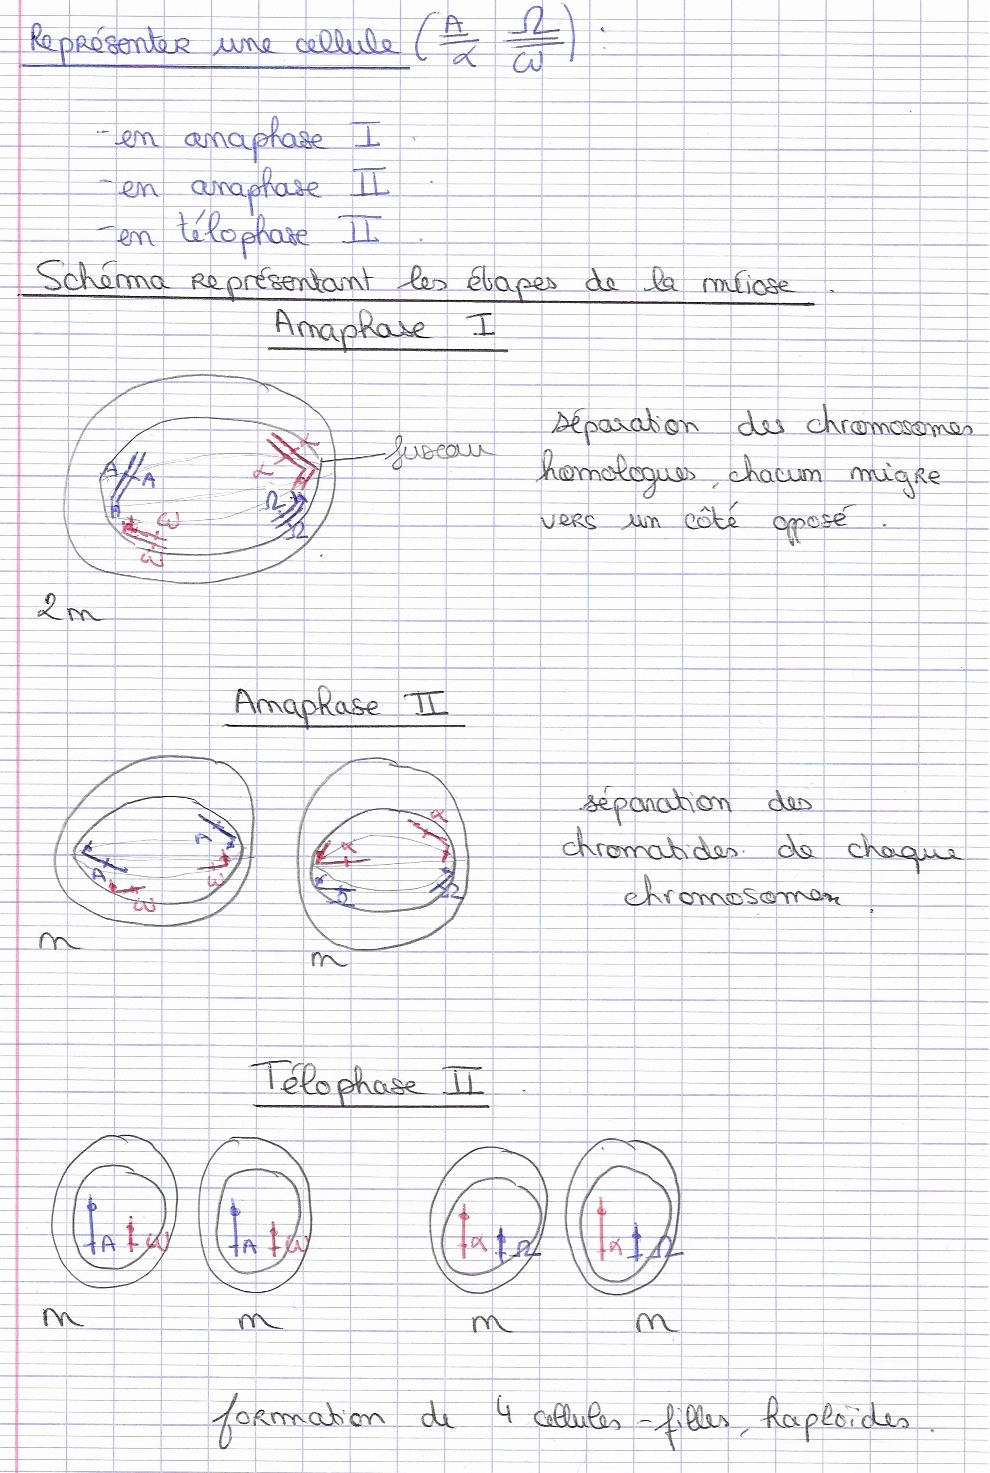 Représenter une cellule (A/α Ω/ω) :
-en anaphase I
-en anaphase II
-en télophase II
Schéma représentant les étapes de la méiose.
Anaphase I
séparation des chromosomes
homologues, chacun migre
vers un côté opposé.
fuseau
A A α α
A Ω
ω ω Ω
2n
Anaphase II
séparation des
chromatides de chaque
chromosomes.
A A α α
ω ω Ω Ω
n n
Télophase II
A ω A ω α Ω α Ω
n n n n
formation de 4 cellules-filles, haploïdes.